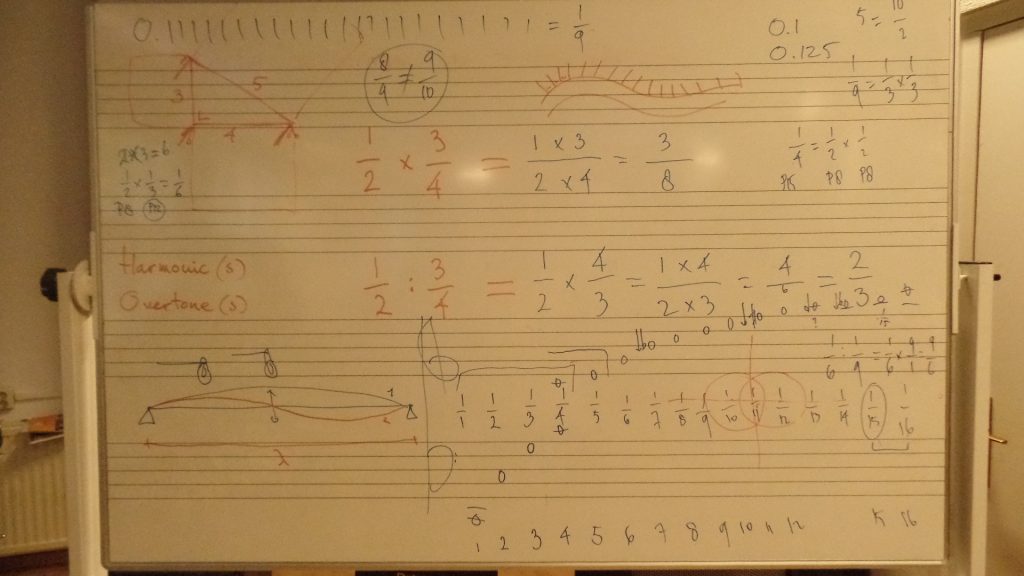 0.11111111111111111111 = 1/9
0.1
0.125
5 = 10/2
8/9 ≠ 9/10
1/9 = 1/3 x 1/3
3
5
4
2x3=6
1/2 x 1/3 = 1/6
P8
1/2 x 3/4 = 1 x 3 / 2 x 4 = 3/8
1/4 = 1/2 x 1/2
P8 P8
Harmonic (s)
Overtone (s)
1/2 : 3/4 = 1/2 x 4/3 = 1 x 4 / 2 x 3 = 4/6 = 2/3
1/6 : 1/9 = 1/6 x 9/1 = 9/6
λ
1/1 1/2 1/3 1/4 1/5 1/6 1/7 1/8 1/9 1/10 1/11 1/12 1/13 1/14 1/15 1/16
1 2 3 4 5 6 7 8 9 10 11 12 15 16